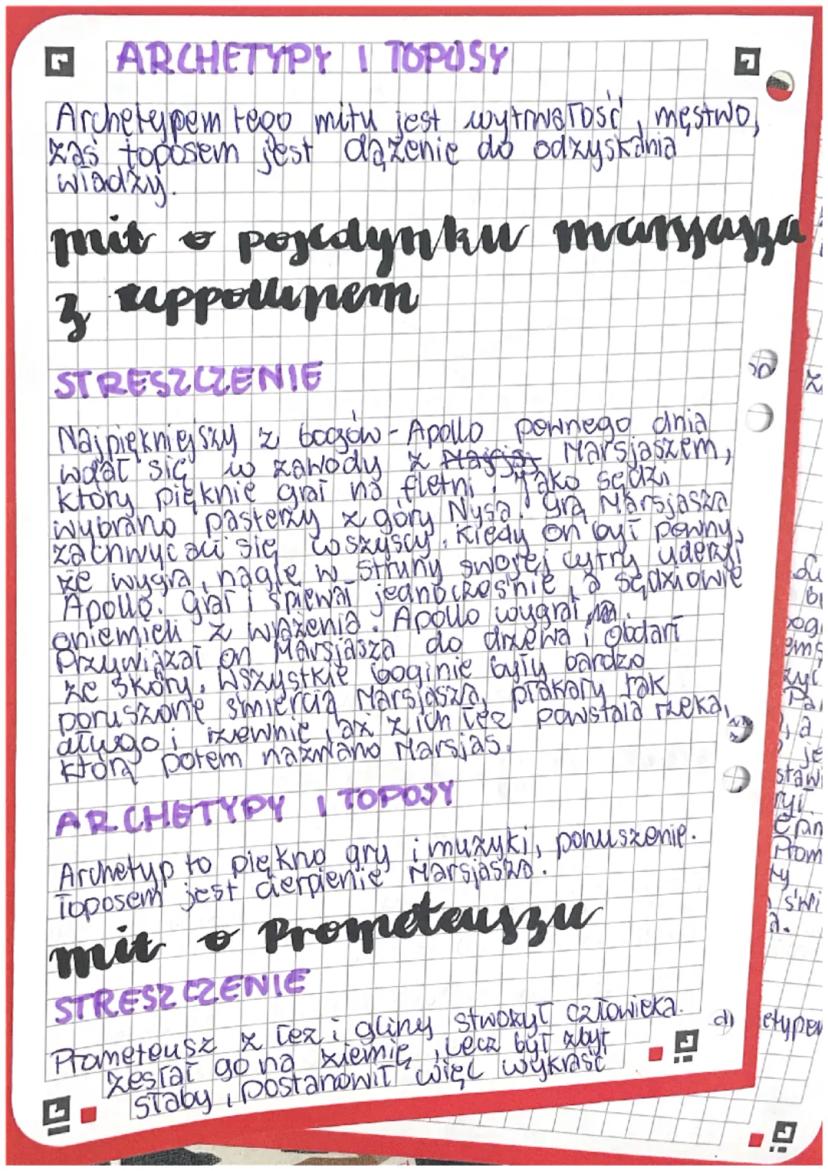 ARCHETYPY I TOPOSY
Archetypem tego mitu jest wytrwałość, męstwo,
zaś toposem jest dążenie do odzyskania
władzy.
mit o pojedynku marsjasza
z appollinem
STRESZCZENIE
Najpiękniejszy z bogów - Apollo pewnego dnia
wdał się w zawody z Marsjaszem,
który pięknie grał na fletni. Jako sędzi
wybrano pasterzy z góry Nysa. Grą Marsjasza
zachwycali się wszyscy. Kiedy on był pewny,
że wygra, nagle w struny swojej cytry uderzył
Apollo. Grał i śpiewał jednocześnie, a sędziowie
oniemieli z wrażenia. Apollo wygrał.
Przywiązał on Marsjasza do drzewa i obdarł
ze skóry. Wszystkie boginie były bardzo
poruszone śmiercią Marsjasza, płakały tak
długo i rzewnie, aż z ich łez powstała rzeka,
którą potem nazwano Marsjas.
ARCHETYPY I TOPOSY
Archetyp to piękno gry i muzyki, poruszenie.
Toposem jest cierpienie Marsjasza.
mit o Prometeuszu
STRESZCZENIE
Prometeusz z łez i gliny stwożył człowieka.
zesłał go na ziemię, lecz był zbyt
słaby, postanowił więc wykraść
d)